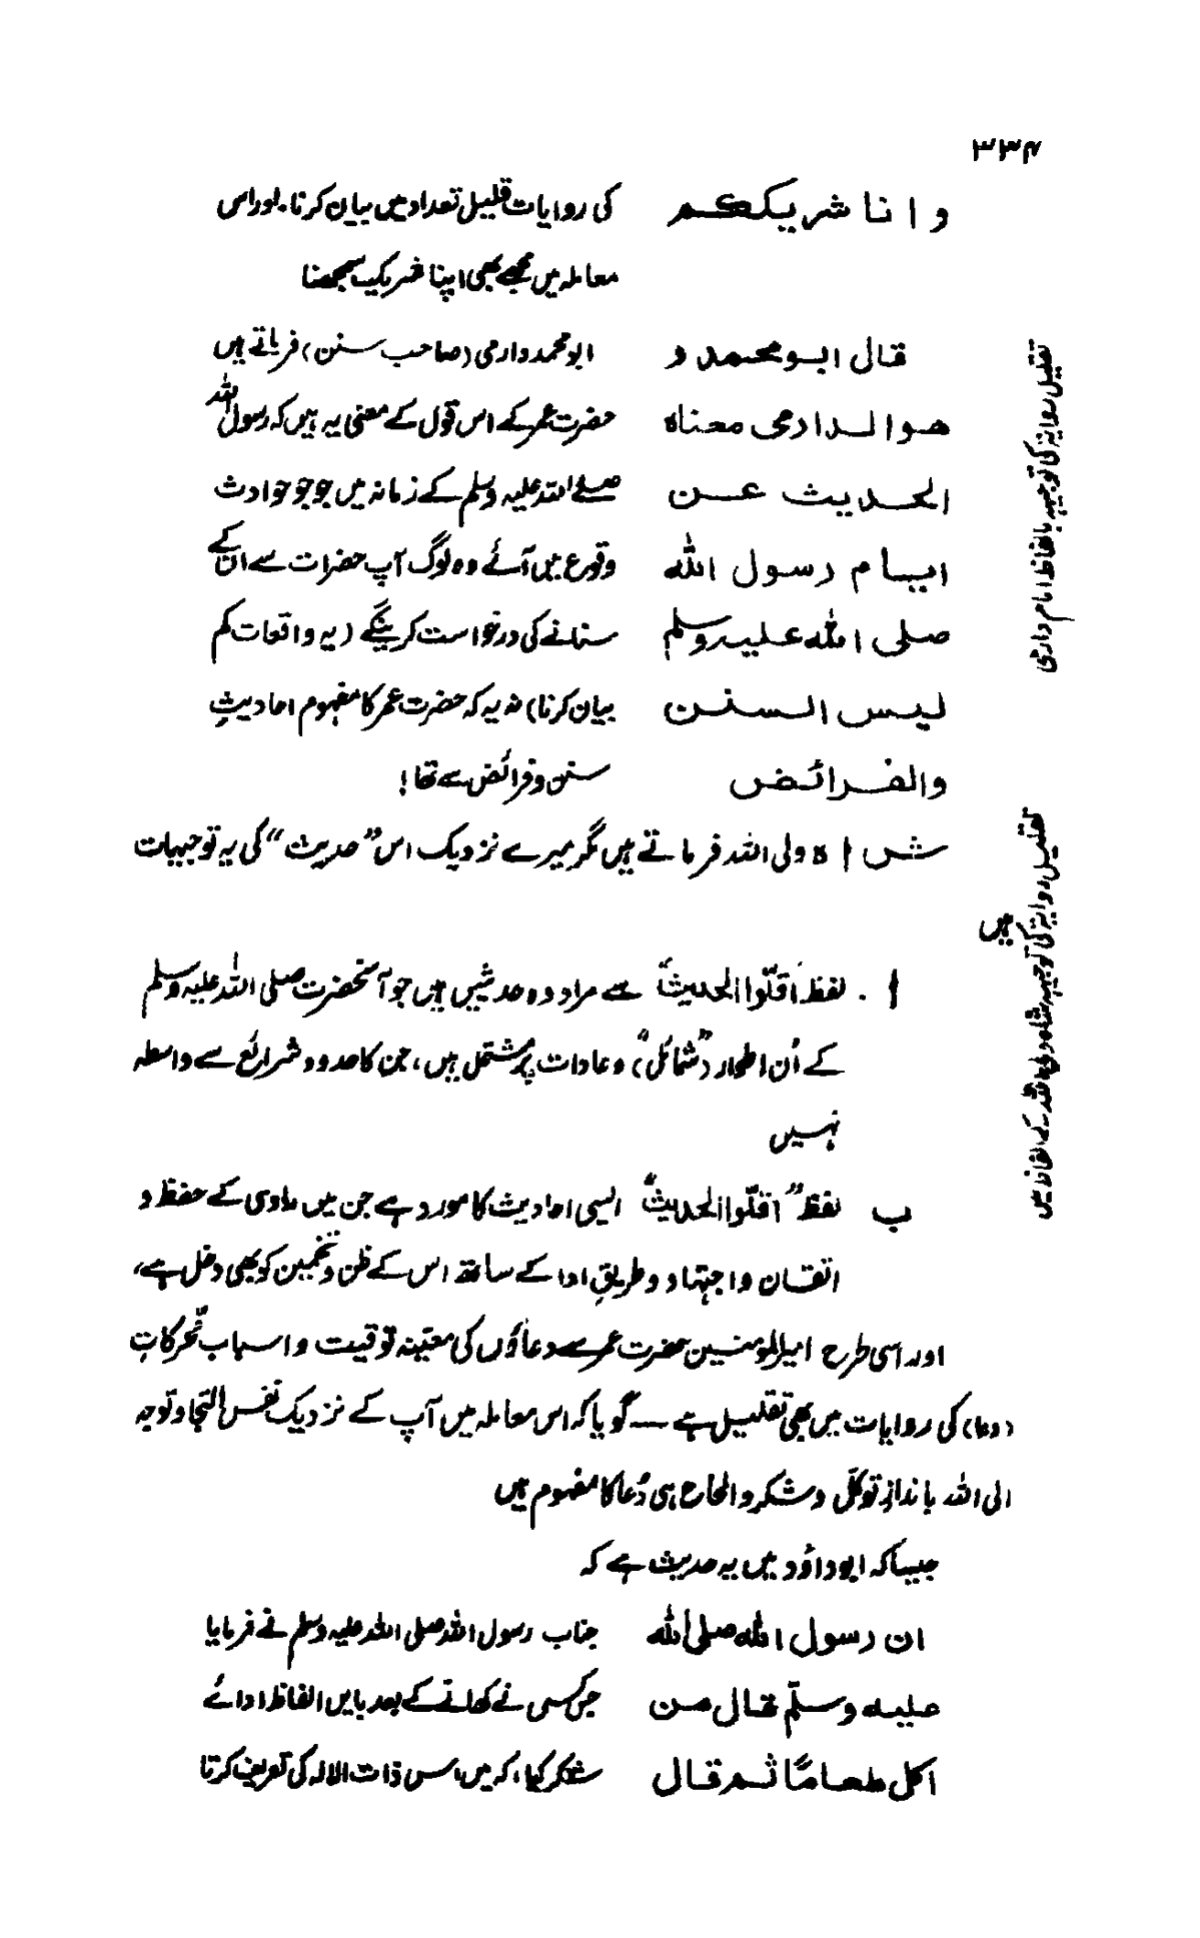 ۳۳۴
وانا شریککم کی روایات قلیل تعداد میں بیان کرنا۔ اور اس
معاملہ میں مجھے بھی اپنا شریک سمجھنا
قال ابو محمد و ابو محمد دارمی (صاحب سنن) فرماتے ہیں
هوالدارمی معناه حضرت عمر کے اس قول کے معنی یہ ہیں کہ رسول اللہ
الحدیث عن صلے اللہ علیہ وسلم کے زمانہ میں جو جو حوادث
ایام رسول الله وقوع میں آئے وہ لوگ آپ حضرات سے ان کے
صلی الله علیہ وسلم سنانے کی درخواست کرینگے (یہ واقعات کم
لیس السنن بیان کرنا) نہ یہ کہ حضرت عمر کا مفہوم احادیثِ
والفرائض سنن و فرائض سے تھا!
شاہ ولی اللہ فرماتے ہیں مگر میرے نزدیک اس ”حدیث“ کی یہ توجیہات
ہیں
ا۔ لفظ ”اقلّوا الحدیث“ سے مراد وہ حدیثیں ہیں جو آنحضرت صلی اللہ علیہ وسلم
کے اُن اطوار (”شمائل“) و عادات پر مشتمل ہیں، جن کا حدود شرائع سے واسطہ
نہیں
ب لفظ ”اقلّوا الحدیث“ ایسی احادیث کا مورد ہے جن میں راوی کے حفظ و
اتقان و اجتہاد و طریقِ ادا کے ساتھ اس کے ظن و تخمین کو بھی دخل ہے،
اور اسی طرح امیرالمومنین حضرت عمر سے دعاؤں کی معیّنہ توقیت و اسباب محرکاتِ
(دعا) کی روایات میں بھی تقلیل ہے — گویا کہ اس معاملہ میں آپ کے نزدیک نفس التجا و توجہ
الی اللہ باندازِ توکّل و شکر و الحاح ہی دُعا کا مفہوم ہیں
جیسا کہ ابوداؤد میں یہ حدیث ہے کہ
ان رسول الله صلی الله جناب رسول اللہ صلی اللہ علیہ وسلم نے فرمایا
علیه وسلّم قال من جس کسی نے کھانے کے بعد بایں الفاظ ادائے
اکل طعامًا ثم قال شکر کیا، کہ میں اس ذات الالہ کی تعریف کرتا
تقلیل روایۃ کی توجیہہ بالفاظ امام دارمی
تقلیل روایۃ کی توجیہہ شاہ ولی اللہ کے الفاظ میں